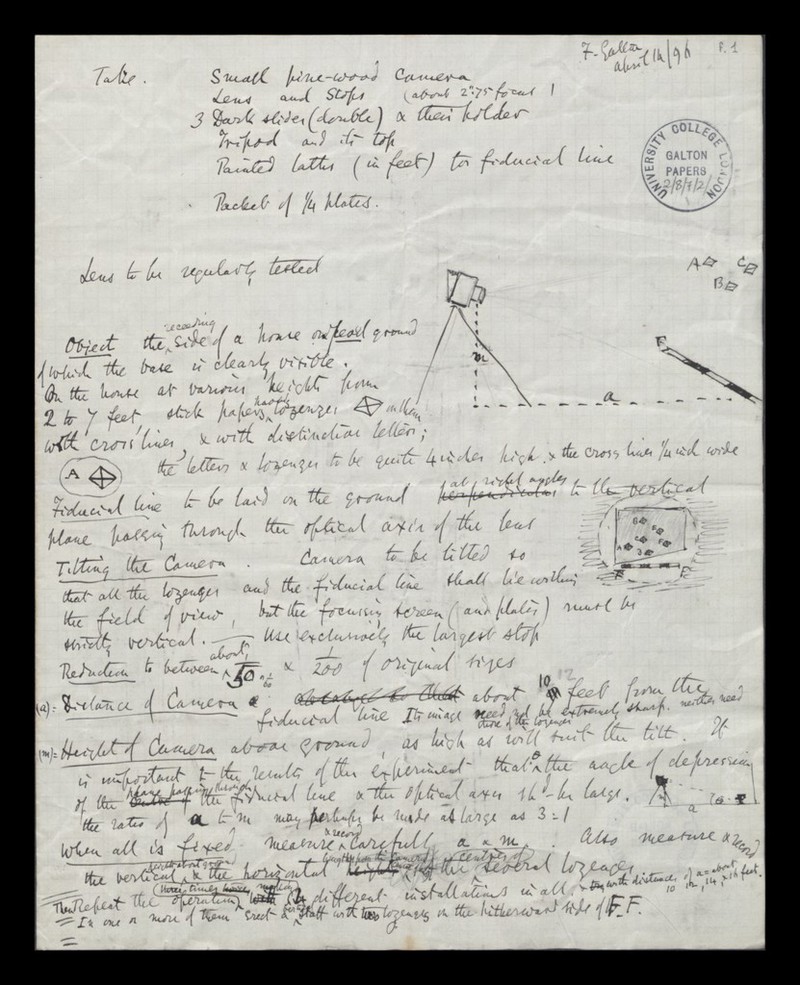 F. Galton
April 14/96
F. 1
Take. Small pine-wood Camera
Lens and Stops (about 2".75 focus)
3 Dark slides (double) & their holder
Tripod and its top
Painted laths (in feet) for fiducial line
Packet of 1/4 plates.
UNIVERSITY COLLEGE LONDON
GALTON
PAPERS
2/8/7/2/
Lens to be regularly tested
A
C
B
m
a
F
Object the receding side of a house on level ground
of which the base is clearly visible.
On the house at various heights from
2 to 7 feet, stick papers having lozenges on them
with cross lines, & with distinctive letters;
A
the letters & lozenges to be quite 4 inches high & the cross lines 1/4 inch wide
Fiducial line to be laid on the ground perpendicular at right angles to the vertical
plane passing through the optical axis of the lens
Tilting the Camera. Camera to be tilted so
that all the lozenges and the fiducial line shall lie within
the field of view, but the focussing screen (and plates) must be
strictly vertical. Use exclusively the largest stop
Reduction to between about 1/50 & 1/200 of original sizes
(a) = Distance of Camera about 10 12 feet from the
fiducial line Its image need not be extremely sharp. neither need
those of the lozenges
(m) = Height of Camera above ground, as high as will suit the tilt. It
is important to the results of the experiment that the angle of depression
of the plane passing through the fiducial line & the optical axis shd. be large.
a
the ratio of a to m may perhaps be made as large as 3=1
When all is fixed measure & record carefully a & m. Also measure & record
the vertical & the horizontal the centres of the several lozenges
Then Repeat the operation three times making 4 different installations in all, with distances of a = about
10, 12, 14, & 16 feet.
In one or more of them erect a staff with lozenges on the hitherward side of F.F.